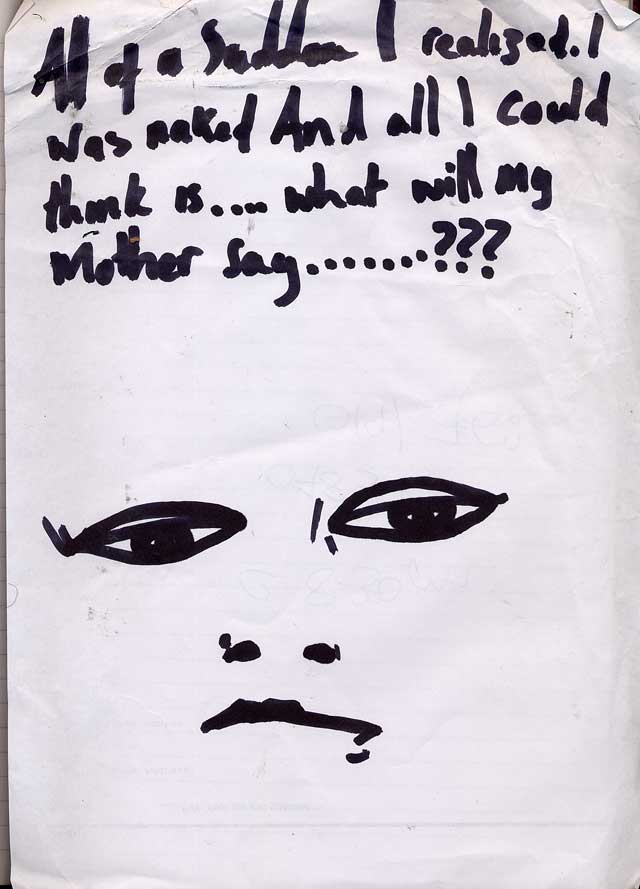 All of a Sudden I realized. I
was naked And all I could
think is.... what will my
Mother say........???